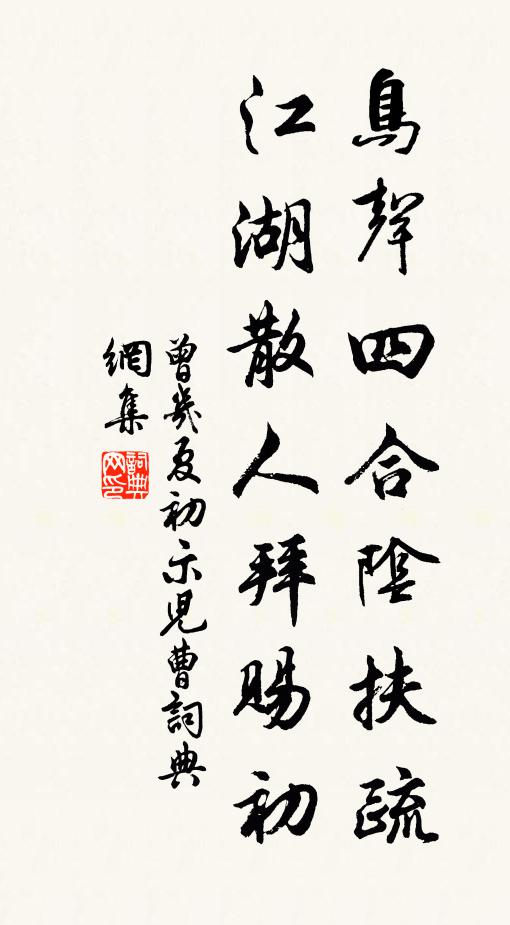 鳥聲四合陰扶疏
江湖散人拜賜初
曾幾夏初示兒曹詞典
網集
詞典網印